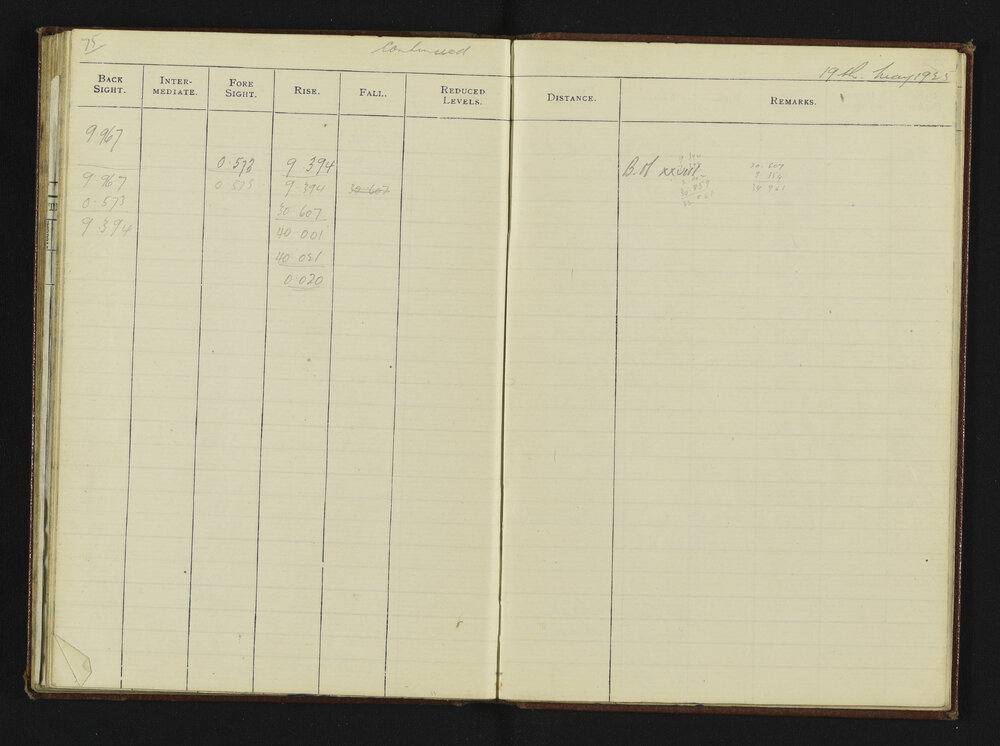 75
Continued
19th. May 19
BACK SIGHT. INTER-MEDIATE. FORE SIGHT. RISE. FALL. REDUCED LEVELS. DISTANCE. REMARKS.
9 967
0.573 9.394 B.M xxviii
9 967 0.573 9.394 30.607
0.573 30.607
9.394 40.001
40 021
0.020
30.607
9.354
39 961